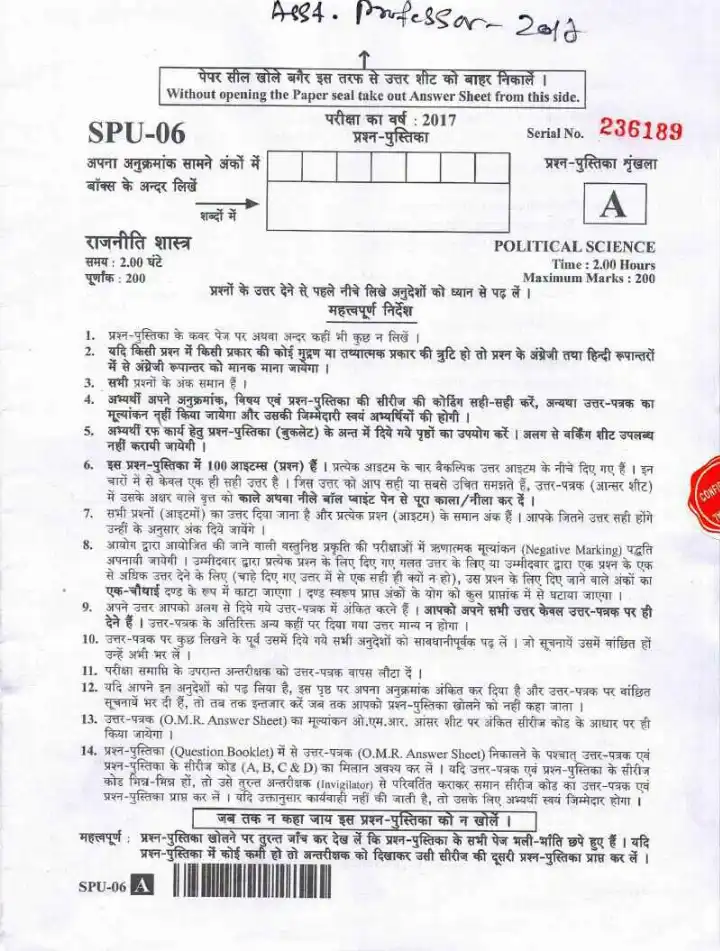 Asst. Professor - 2017
पेपर सील खोले बगैर इस तरफ से उत्तर शीट को बाहर निकालें ।
Without opening the Paper seal take out Answer Sheet from this side.
SPU-06
परीक्षा का वर्ष : 2017
प्रश्न-पुस्तिका
Serial No. 236189
अपना अनुक्रमांक सामने अंकों में
बॉक्स के अन्दर लिखें
शब्दों में
प्रश्न-पुस्तिका शृंखला
A
राजनीति शास्त्र
समय : 2.00 घंटे
पूर्णांक : 200
POLITICAL SCIENCE
Time : 2.00 Hours
Maximum Marks : 200
प्रश्नों के उत्तर देने से पहले नीचे लिखे अनुदेशों को ध्यान से पढ़ लें ।
महत्त्वपूर्ण निर्देश
1. प्रश्न-पुस्तिका के कवर पेज पर अथवा अन्दर कहीं भी कुछ न लिखें ।
2. यदि किसी प्रश्न में किसी प्रकार की कोई मुद्रण या तथ्यात्मक प्रकार की त्रुटि हो तो प्रश्न के अंग्रेजी तथा हिन्दी रूपान्तरों
में से अंग्रेजी रूपान्तर को मानक माना जायेगा ।
3. सभी प्रश्नों के अंक समान हैं ।
4. अभ्यर्थी अपने अनुक्रमांक, विषय एवं प्रश्न-पुस्तिका की सीरीज की कोडिंग सही-सही करें, अन्यथा उत्तर-पत्रक का
मूल्यांकन नहीं किया जायेगा और उसकी जिम्मेदारी स्वयं अभ्यर्थियों की होगी ।
5. अभ्यर्थी रफ कार्य हेतु प्रश्न-पुस्तिका (बुकलेट) के अन्त में दिये गये पृष्ठों का उपयोग करें । अलग से वर्किंग शीट उपलब्ध
नहीं करायी जायेगी ।
6. इस प्रश्न-पुस्तिका में 100 आइटम्स (प्रश्न) हैं । प्रत्येक आइटम के चार वैकल्पिक उत्तर आइटम के नीचे दिए गए हैं । इन
चारों में से केवल एक ही सही उत्तर है । जिस उत्तर को आप सही या सबसे उचित समझते हैं, उत्तर-पत्रक (आन्सर शीट)
में उसके अक्षर वाले वृत्त को काले अथवा नीले बॉल प्वाइंट पेन से पूरा काला/नीला कर दें ।
7. सभी प्रश्नों (आइटमों) का उत्तर दिया जाना है और प्रत्येक प्रश्न (आइटम) के समान अंक हैं । आपके जितने उत्तर सही होंगे
उन्हीं के अनुसार अंक दिये जायेंगे ।
8. आयोग द्वारा आयोजित की जाने वाली वस्तुनिष्ठ प्रकृति की परीक्षाओं में ऋणात्मक मूल्यांकन (Negative Marking) पद्धति
अपनायी जायेगी । उम्मीदवार द्वारा प्रत्येक प्रश्न के लिए दिए गए गलत उत्तर के लिए या उम्मीदवार द्वारा एक प्रश्न के एक
से अधिक उत्तर देने के लिए (चाहे दिए गए उत्तर में से एक सही ही क्यों न हो), उस प्रश्न के लिए दिए जाने वाले अंकों का
एक-चौथाई दण्ड के रूप में काटा जाएगा । दण्ड स्वरूप प्राप्त अंकों के योग को कुल प्राप्तांक में से घटाया जाएगा ।
9. अपने उत्तर आपको अलग से दिये गये उत्तर-पत्रक में अंकित करने हैं । आपको अपने सभी उत्तर केवल उत्तर-पत्रक पर ही
देने हैं । उत्तर-पत्रक के अतिरिक्त अन्य कहीं पर दिया गया उत्तर मान्य न होगा ।
10. उत्तर-पत्रक पर कुछ लिखने के पूर्व उसमें दिये गये सभी अनुदेशों को सावधानीपूर्वक पढ़ लें । जो सूचनायें उसमें वांछित हों
उन्हें अभी भर लें ।
11. परीक्षा समाप्ति के उपरान्त अन्तरीक्षक को उत्तर-पत्रक वापस लौटा दें ।
12. यदि आपने इन अनुदेशों को पढ़ लिया है, इस पृष्ठ पर अपना अनुक्रमांक अंकित कर दिया है और उत्तर-पत्रक पर वांछित
सूचनायें भर दी हैं, तो तब तक इन्तजार करें जब तक आपको प्रश्न-पुस्तिका खोलने को नहीं कहा जाता ।
13. उत्तर-पत्रक (O.M.R. Answer Sheet) का मूल्यांकन ओ.एम.आर. आंसर शीट पर अंकित सीरीज कोड के आधार पर ही
किया जायेगा ।
14. प्रश्न-पुस्तिका (Question Booklet) में से उत्तर-पत्रक (O.M.R. Answer Sheet) निकालने के पश्चात् उत्तर-पत्रक एवं
प्रश्न-पुस्तिका के सीरीज कोड (A, B, C & D) का मिलान अवश्य कर लें । यदि उत्तर-पत्रक एवं प्रश्न-पुस्तिका के सीरीज
कोड भिन्न-भिन्न हों, तो उसे तुरन्त अन्तरीक्षक (Invigilator) से परिवर्तित कराकर समान सीरीज कोड का उत्तर-पत्रक एवं
प्रश्न-पुस्तिका प्राप्त कर लें । यदि उक्तानुसार कार्यवाही नहीं की जाती है, तो उसके लिए अभ्यर्थी स्वयं जिम्मेदार होगा ।
जब तक न कहा जाय इस प्रश्न-पुस्तिका को न खोलें ।
महत्त्वपूर्ण : प्रश्न-पुस्तिका खोलने पर तुरन्त जाँच कर देख लें कि प्रश्न-पुस्तिका के सभी पेज भली-भाँति छपे हुए हैं । यदि
प्रश्न-पुस्तिका में कोई कमी हो तो अन्तरीक्षक को दिखाकर उसी सीरीज की दूसरी प्रश्न-पुस्तिका प्राप्त कर लें ।
SPU-06 A